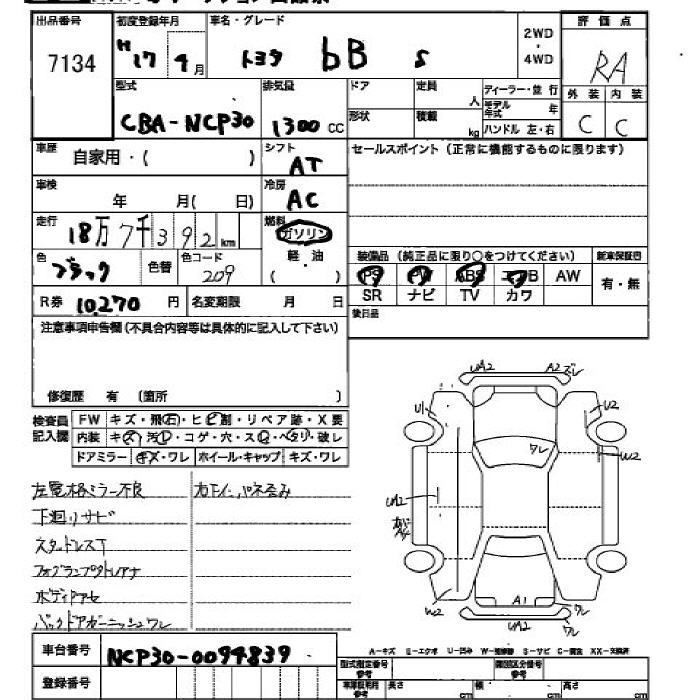 出品番号 初度登録年月 車名・グレード 2WD ・ 4WD 評価点
7134 H17 年 4月 トヨタ bB S RA
型式 排気量 ドア 定員 人 ディーラー・並行 外装 内装
CBA-NCP30 1300 CC 形状 積載 kg モデル年式 年 ハンドル 左・右 C C
車歴 自家用・( ) シフト AT セールスポイント(正常に機能するものに限ります)
車検 年 月( 日) 冷房 AC
走行 18万7千392km 燃料 ガソリン
色 ブラック 色替 色コード 209 軽・油 ( )
装備品 (純正品に限り○をつけてください) 新車保証書
PS PW ABS エアB AW 有・無
SR ナビ TV カワ
R券 10,270 円 名変期限 月 日 後日品
注意事項申告欄(不具合内容等は具体的に記入して下さい)
修復歴 有 (箇所 )
検査員記入欄 FW キズ・飛石・ヒビ割・リペア跡・X要
内装 キズ・汚レ・コゲ・穴・スレ・ヘタリ・破レ
ドアミラー キズ・ワレ ホイール・キャップ キズ・ワレ
UA2 A2 ズレ
U1 U2
ワレ W2
UA2
W2 A1 ワレ
UA2 ワレ
左電格ミラー不良
下廻りサビ
スタッドレスT
ボディアセ
バックドアガーニッシュワレ
A-キズ E-エクボ U-凹み W-補修跡 S-サビ C-腐食 XX-交換済
車台番号 NCP30-0094839
登録番号
型式指定番号 参考 類別区分番号 参考
車庫証明用 参考 長さ cm 幅 cm 高さ cm